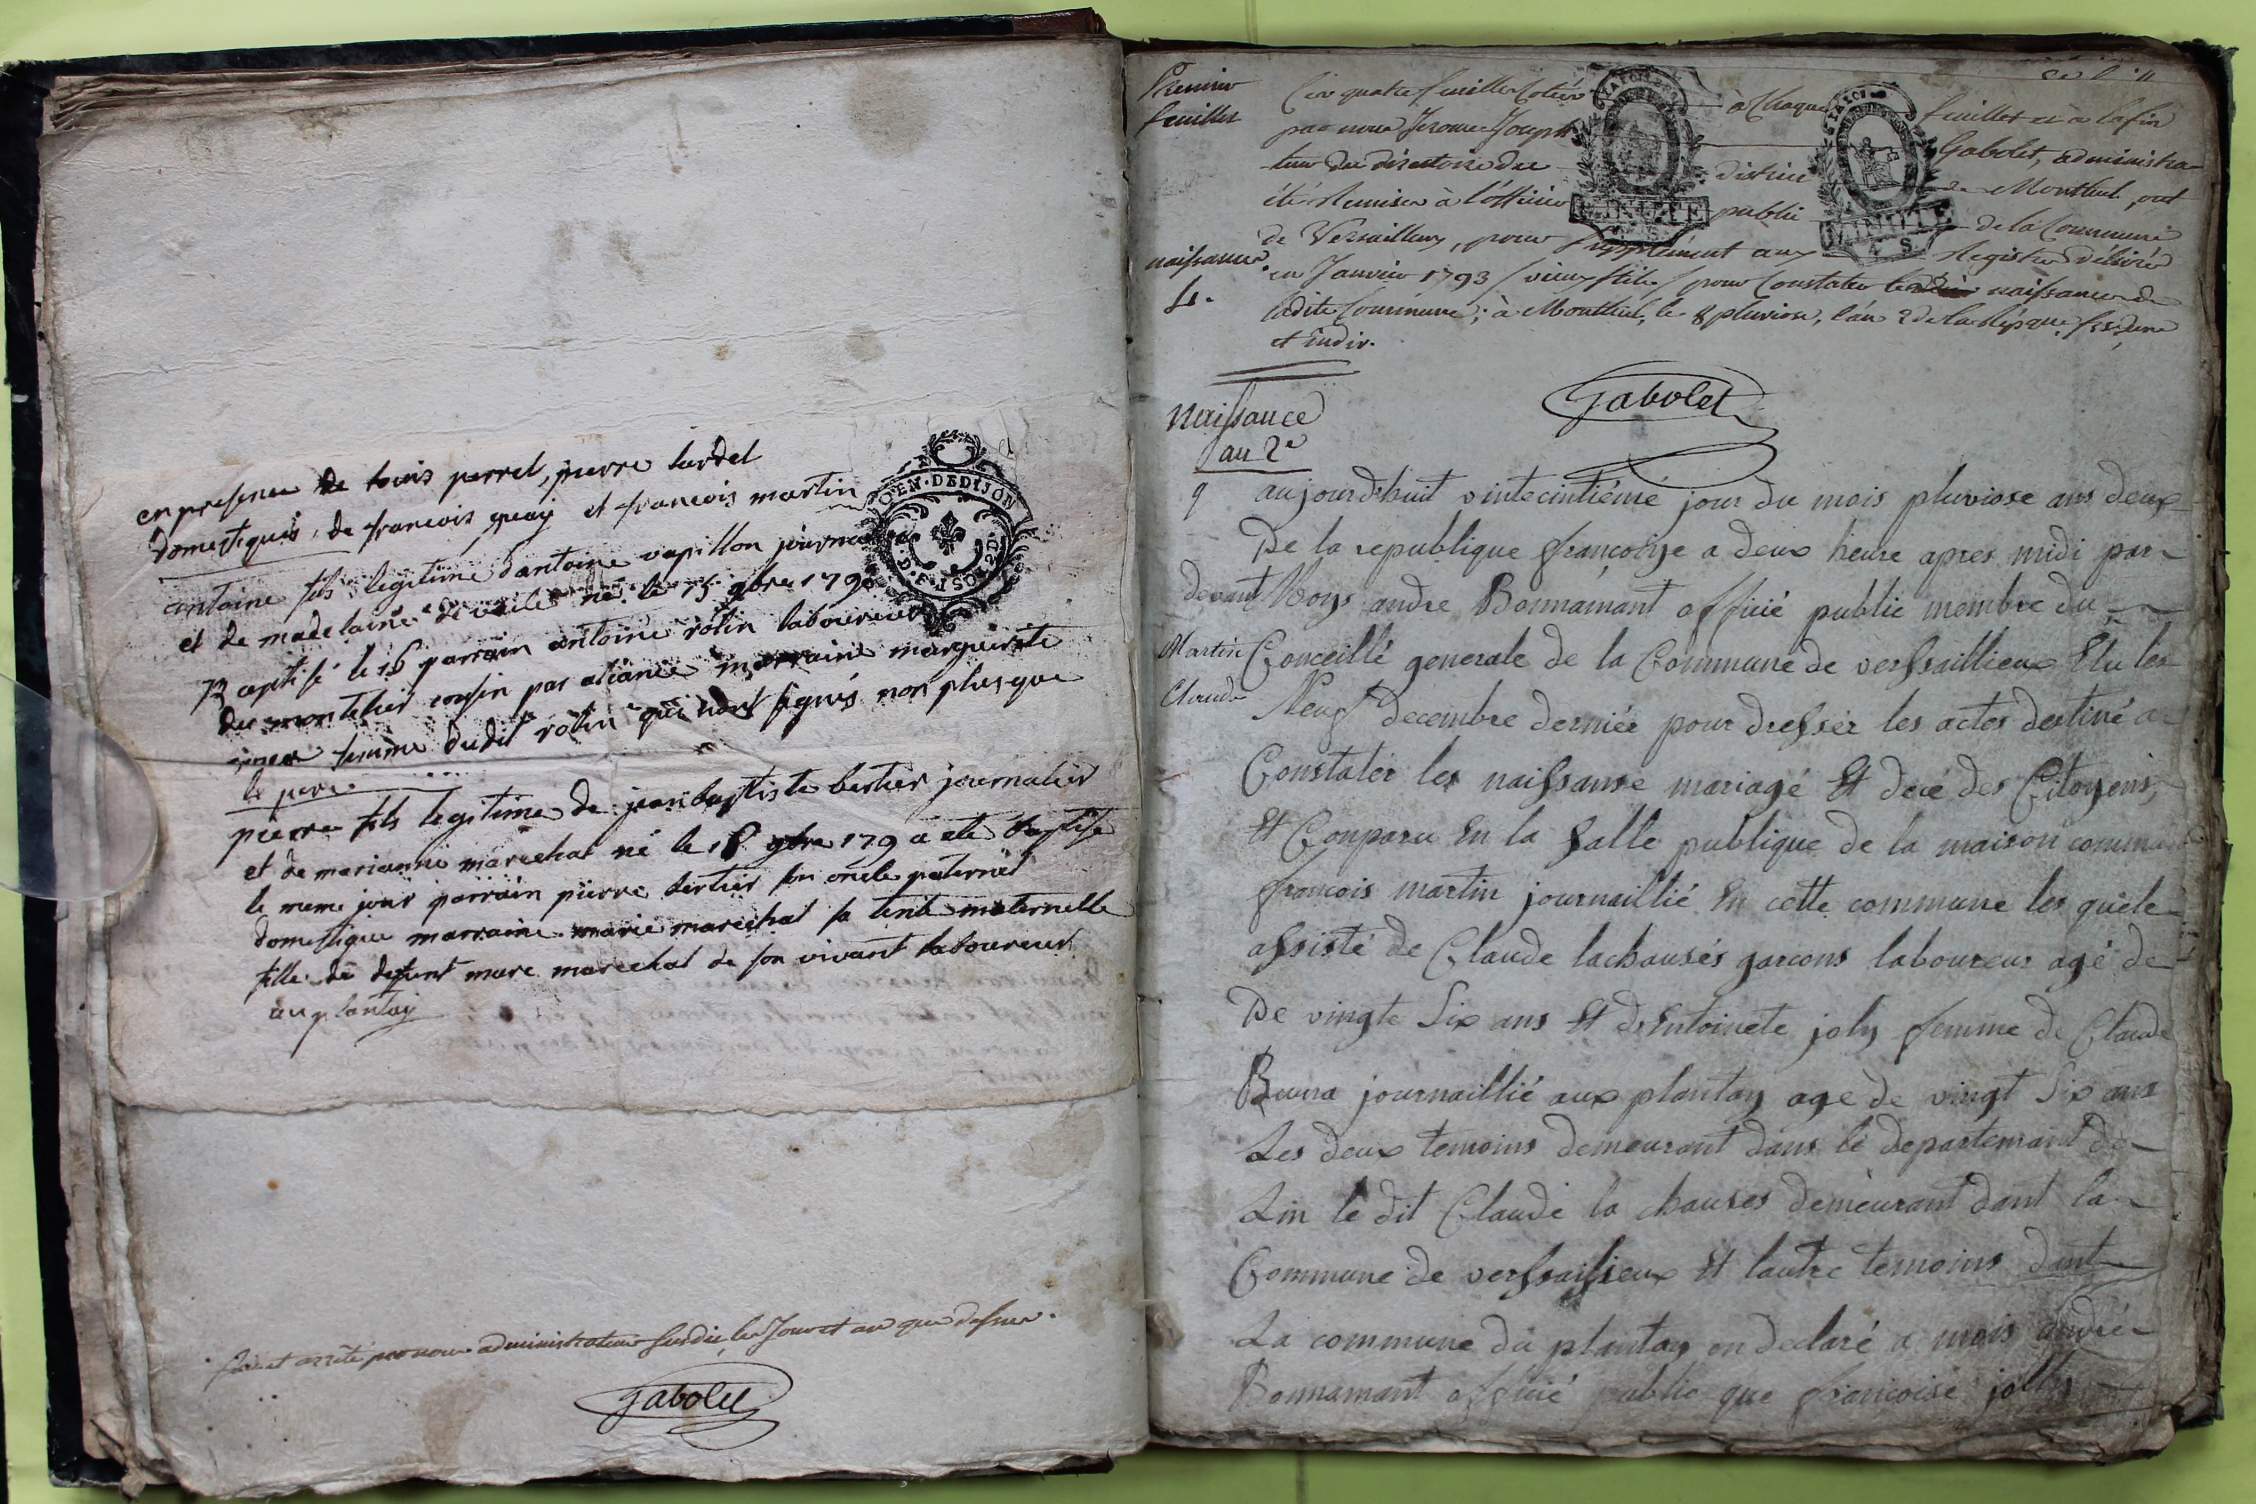 en presence de louis perret, pierre lardet
domestiques, de francois quay et francois martin
antoine fils legitime d'antoine vapillon journalier
et de madelaine né le 15 9bre 179
Baptisé le 16 parrain antoine rolin laboureur
du montelier cousin par aliance marraine marguerite
femme dudit rolin qui n'ont signés non plus que
le pere
pierre fils legitime de jean baptiste bertier journalier
et de marianne marechal né le 18 9bre 179 a eté baptisé
le meme jour parrain pierre bertier son oncle paternel
domestique marraine marie marechal sa tente maternelle
fille de defunt marc marechal de son vivant laboureur
au plantay
EN·DEDIJON
fait et arrêté par nous administrateur susdit, les Jour et an que dessus.
Gabolet
Premier
feuillet
naissance
Les quatre feuillets cotés à Chaque feuillet et à la fin
par nous Jerome Joseph Gabolet, administra-
teur du directoire du district de Montluel, ont
été Remises à l'officier public de la Commune
de Versailleux, pour supplément aux Registres délivrés
en Janvier 1793 (vieux stile) pour Constater les naissances de
ladite Commune; à Montluel, le 8 pluviose, l'an 2 de la Répque frse, une
et indiv.
Gabolet
Naissance
au 2e
9
aujourdhuit vintecintiémé jour du mois pluviose ans deux
De la republique françoise a deux heure apres midi par
devant Nous andre Bonnamant officié public membre du
Martin
Claude
Conceillé generale de la Commune de verssaillieux Elu les
Neuf decembre derniér pour dressér les actes destiné a
Constatér les naissanse mariagé Et decé des Citoyens,
Et Conparu En la Salle publique de la maison commun
francois martin journaillié En cette commune les quele
assisté de Claude lachausés garcons laboureur agé de
De vingte Six ans Et d'Entoinete joly femme de Claude
journaillié aux plantay age de vingt Six ans
Les deux temoins demeurant dans le departemant de
Lin le dit Claude la chauses demeurant dant la
Commune de verssaisieux Et lautre temoins dant
La commune du plantay on declaré a mois andré
Bonnamant officié public que francoise jolly